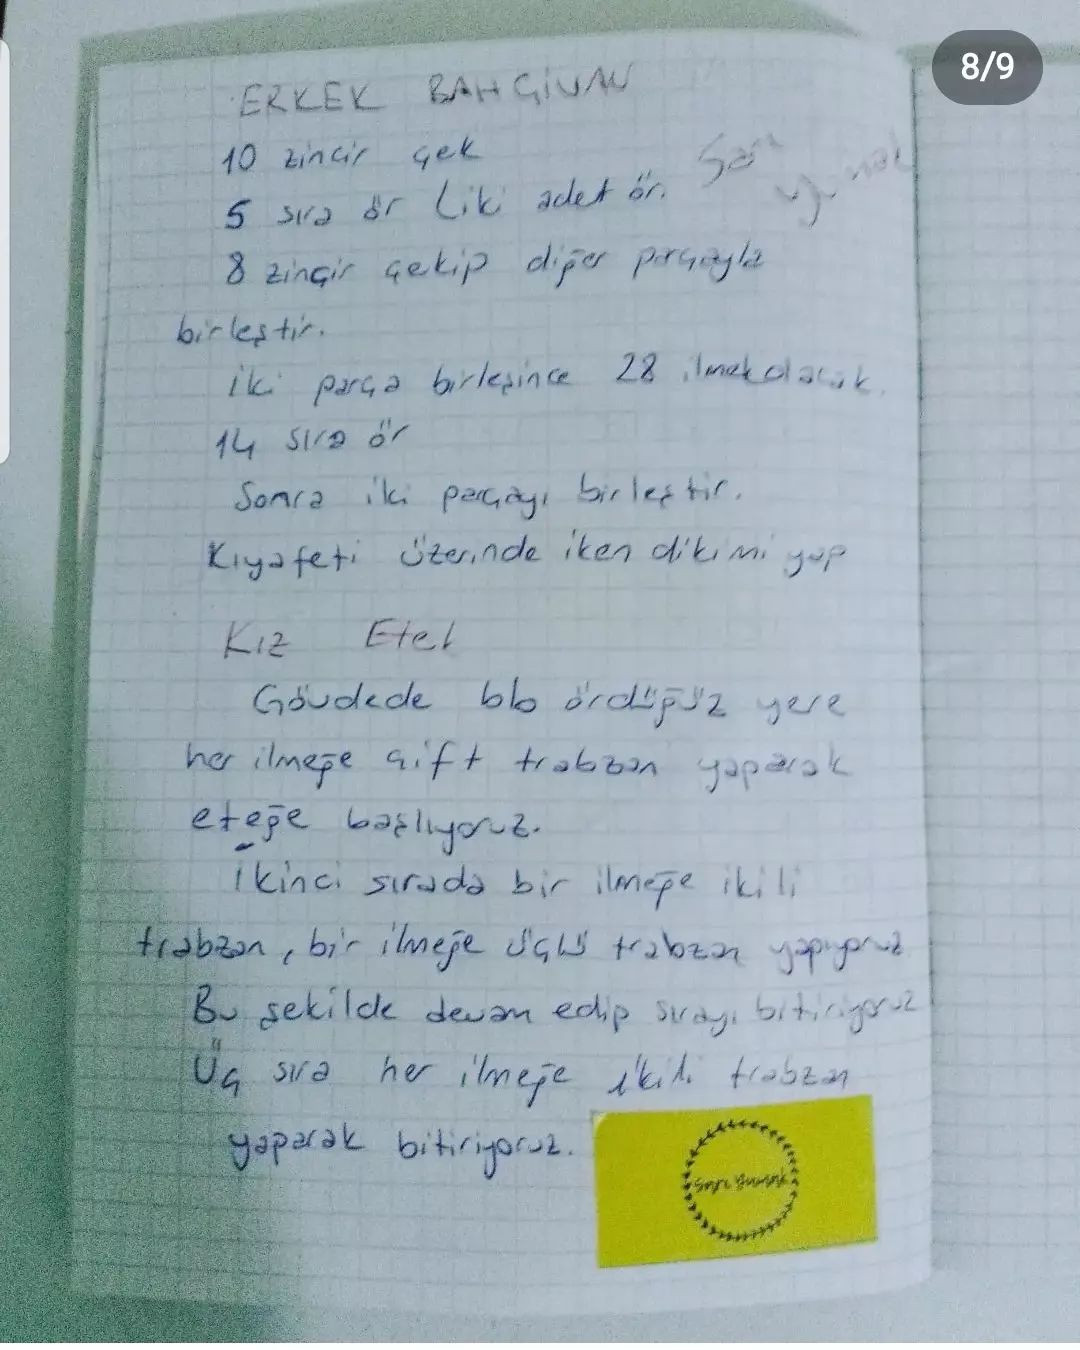 8/9
ERKEK BAHÇİVAN
10 zincir çek
Sarı yumak
5 sıra ör (iki adet ör.
8 zinçir çekip diğer parçayla
birleştir.
İki parça birleşince 28 ilmek olacak.
14 sıra ör
Sonra iki parçayı birleştir.
Kıyafeti üzerinde iken dikimi yap
Kız Etek
Gövdede bbo ördüğüz yere
her ilmeğe çift trabzan yaparak
eteğe başlıyoruz.
İkinci sırada bir ilmeğe ikili
trabzan, bir ilmeğe üçlü trabzan yapıyoruz
Bu şekilde devam edip sırayı bitiriyoruz
Üç sıra her ilmeğe ikili trabzan
yaparak bitiriyoruz.
Sarı Yumak